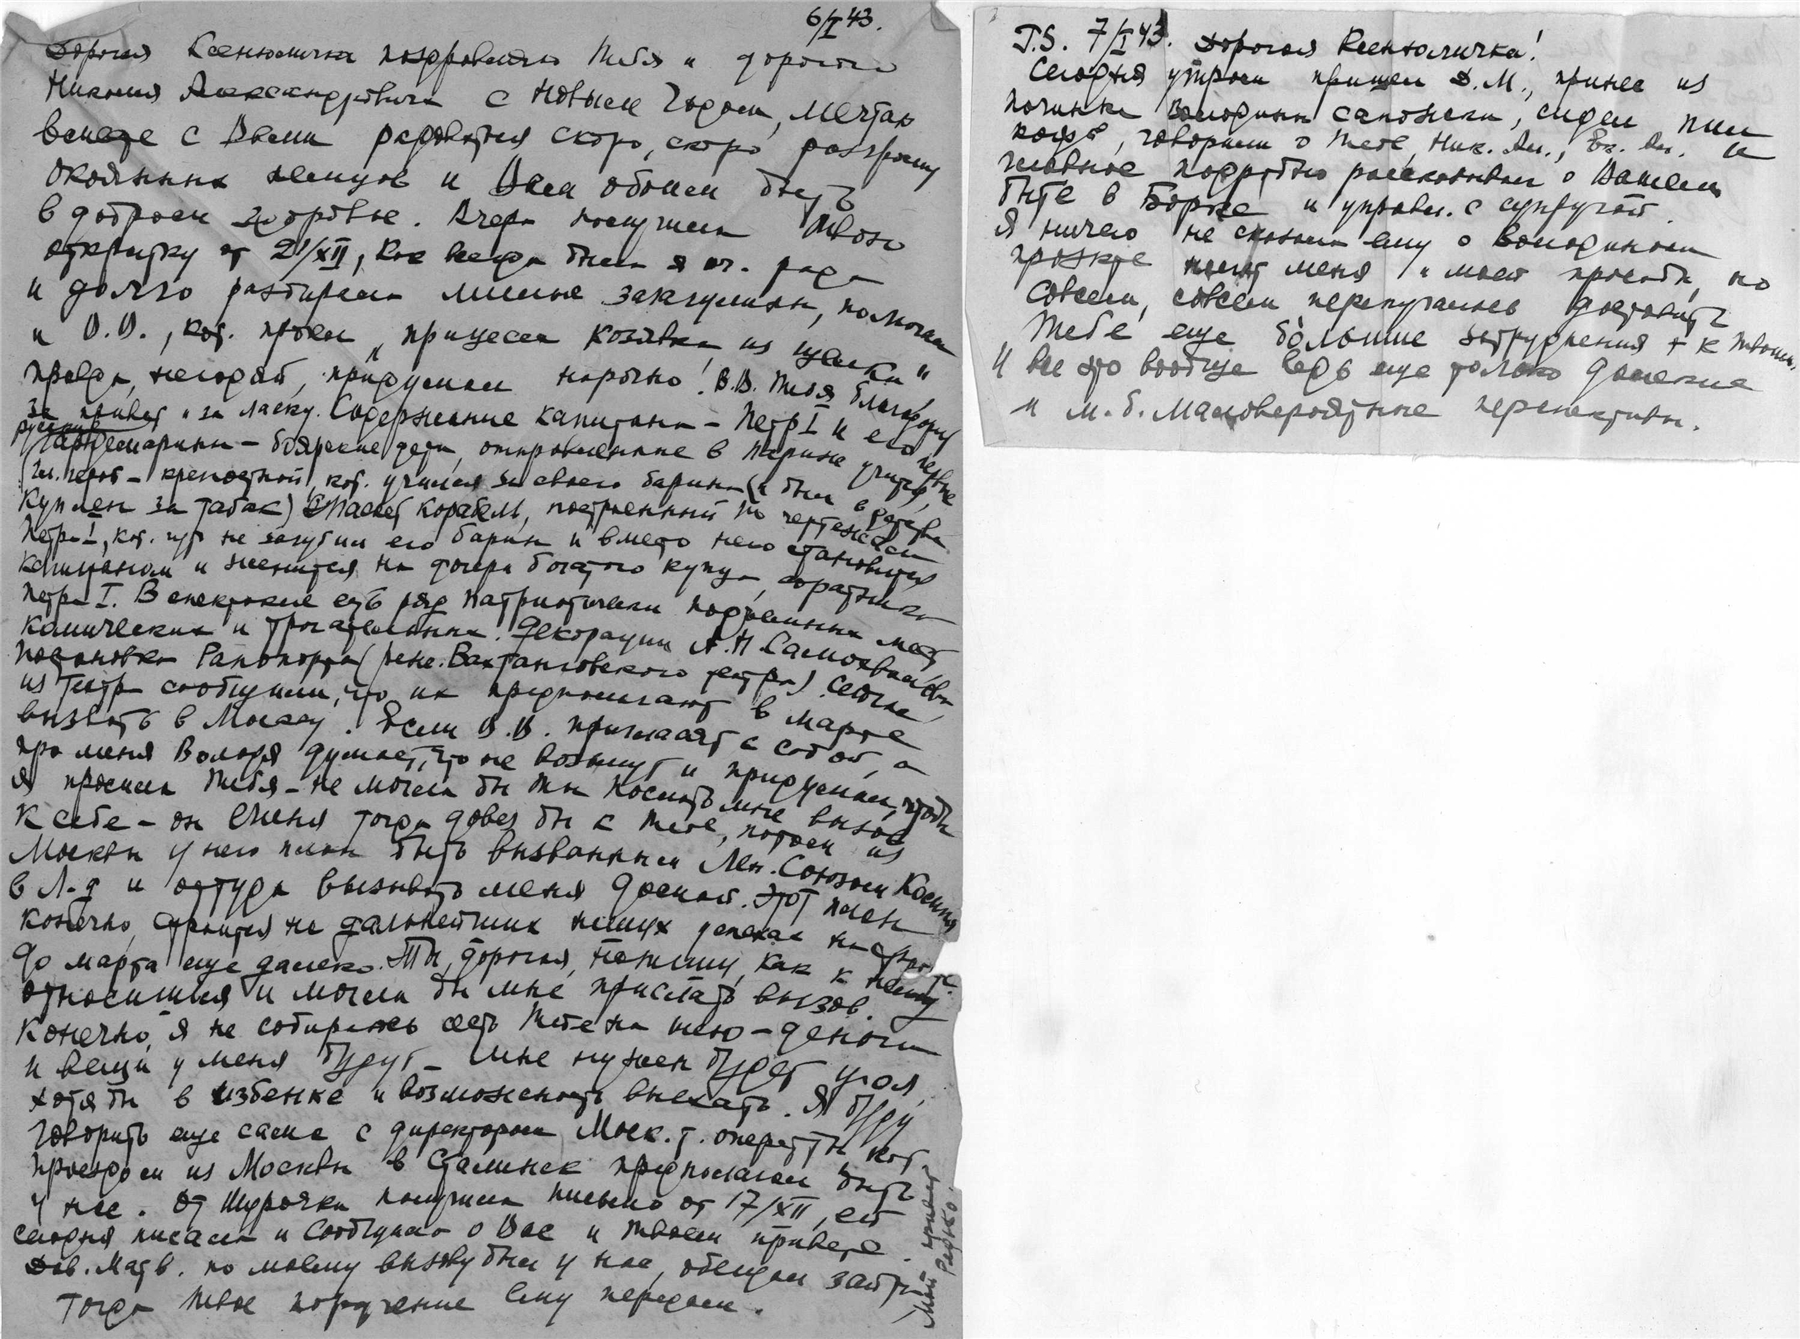 6/I 43.
Дорогая Ксенюмичка поздравляю Тебя и дорогого
Николая Александровича с Новым Годом, мечтаю
вместе с Вами радоваться скоро, скоро разгрому
окаянных немцев и Вам обоим быть
в добром здоровье. Вчера получила Твою
открытку от 21/XII, как всегда была я оч. рада
и долго разбирала милые закгулины, помогал
и В.В., кот. прочел „принцесса козявка из щелки"
правда, негодяй, придумал нарочно! В.В. Тебя благодарит
за привет и за ласку. Содержание капитана – Петр I и его первые
русские гардемарины – боярские дети, отправленные в Париж учиться,
(Гл. герой – крепостной, кот. учился за своего барина (и был в детстве
куплен за табак) спасает корабль, построенный по чертежам
Петра I, кот. чуть не загубил его барин и вместо него становится
капитаном и женится на дочери богатого купца, соратника
Петра I. В спектакле есть ряд патриотически подъемных мест
комических и трогательных. Декорации А.Н. Самохвалова,
постановка Рапопорта (реж. Вахтанговского театра). Сейчас
из театра сообщили, что их предполагают в марте
вызвать в Москву. Если В.В. пригласят с собой, а
про меня Володя думает, что не возьмут и придумал, чтобы
я просила Тебя – не могла бы Ты послать мне вызов
к себе – он меня тогда довез бы к Тебе, потом из
Москвы у него план быть вызванным Лен. Союзом
в Л-д и оттуда вызвать меня домой. Этот план
конечно, строится на дальнейших наших успехах на фронте.
До марта еще далеко. Ты, дорогая, напиши, как к этому
относишься и могла бы мне прислать вызов.
Конечно, я не собираюсь сесть Тебе на шею – деньги
и вещи у меня будут – мне нужен будет угол,
хотя бы в избенке и возможность выехать. Я буду
говорить еще сама с директором Моск. т. оперетты, кот.
проездом из Москвы в Сталинск предполагал быть
у нас. От Шурочки получила письмо от 17/XII, ей
сегодня писала и сообщила о Вас и твоем привете.
Дав. Матв. по моему вызову был у нас, обещал зайти
тогда Твое поручение ему передам.
Мой привет
P.S. 7/I 43. Дорогая Ксенюмичка!
Сегодня утром пришел Д.М., принес из
починки Володины сапожки, сидел пил
кофе, говорили о Тебе, Ник. Ал., Ек. Ал. и
главное подробно рассказывал о Вашем
быте в Борке и управл. с супругой.
Я ничего не сказала ему о Володином
проекте насчет меня и моей просьбы, но
совсем, совсем перепугалась доставить
Тебе еще бо́льшие затруднения + к твоим.
И все это вообще ведь еще только далекие
и м.б. маловероятные перспективы.